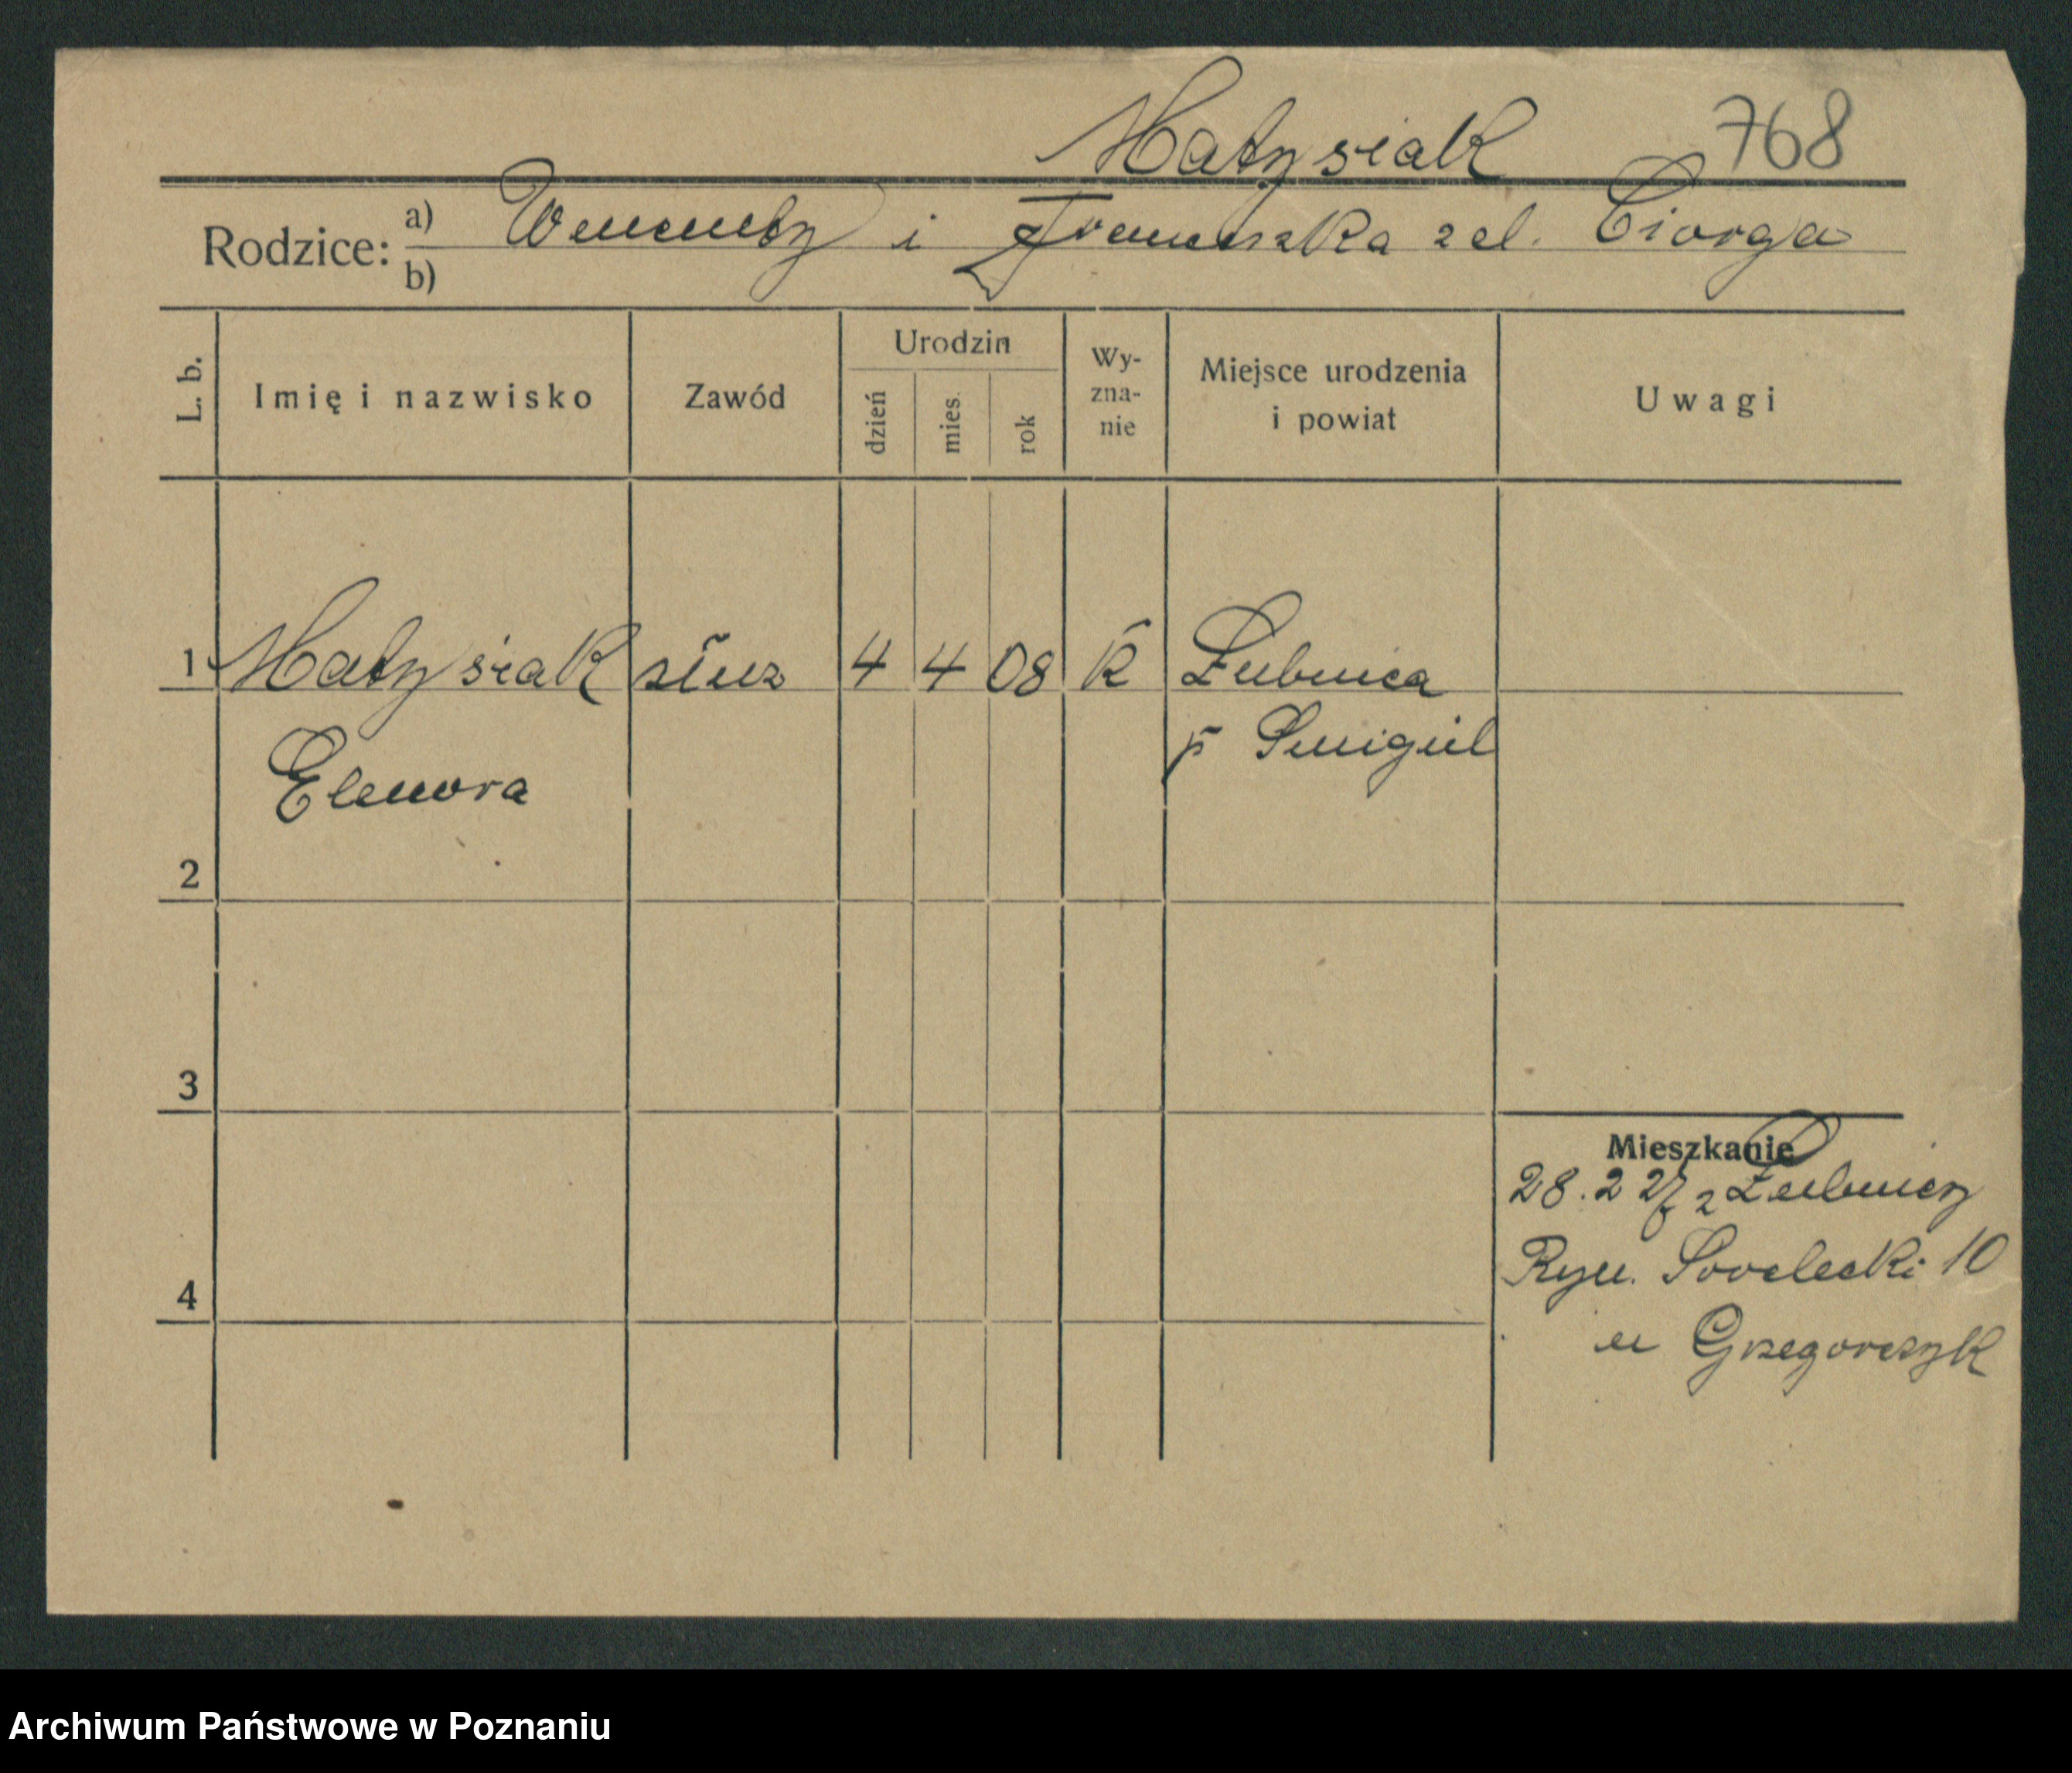 Matysiak 768
Rodzice: a) Wincenty i Franciszka zd. Ciorga
b)
L. b. Imię i nazwisko Zawód Urodzin dzień mies. rok Wy-zna-nie Miejsce urodzenia i powiat Uwagi
1 Matysiak służ 4 4 08 k Żubnica
p Smigiel
Elenora
2
3
Mieszkanie
28.2 27 z Żubnicy
4
Ryn. Środecki 10
u Grzegorczyk
Archiwum Państwowe w Poznaniu